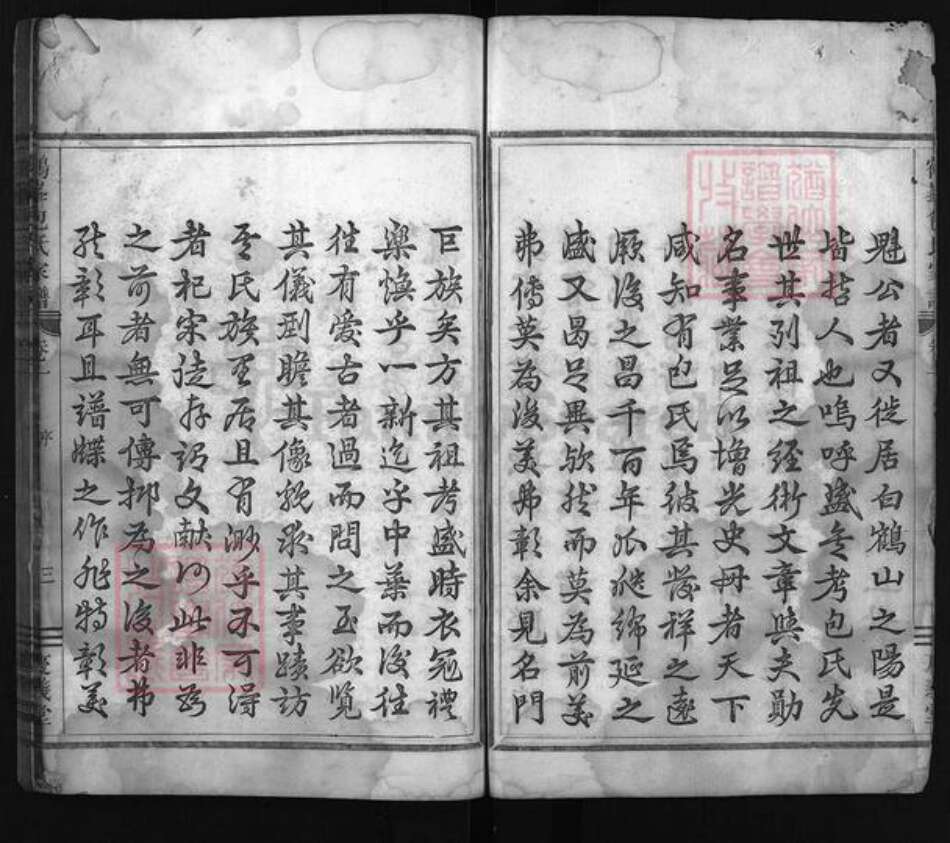 魁公者又徙居白鶴山之陽是
皆哲人也嗚呼盛矣考包氏先
世其列祖之經術文章與夫勛
名事業足以增光史冊者天下
咸知有包氏焉彼其發祥之遠
厥後之昌千百年瓜瓞綿延之
盛又曷足異欤然而莫為前美
弗傳莫為後美弗彰余見名門
巨族矣方其祖考盛時衣冠禮
樂煥乎一新迄乎中葉而後往
往有愛古者過而問之至欲覽
其儀到瞻其像貌求其事蹟訪
氏族里居且有渺乎不可得
者杞宋徒存詔文献何此非為
之前者無可傳抑為之後者弗
能彰耳且譜牒之作非特彰美
三